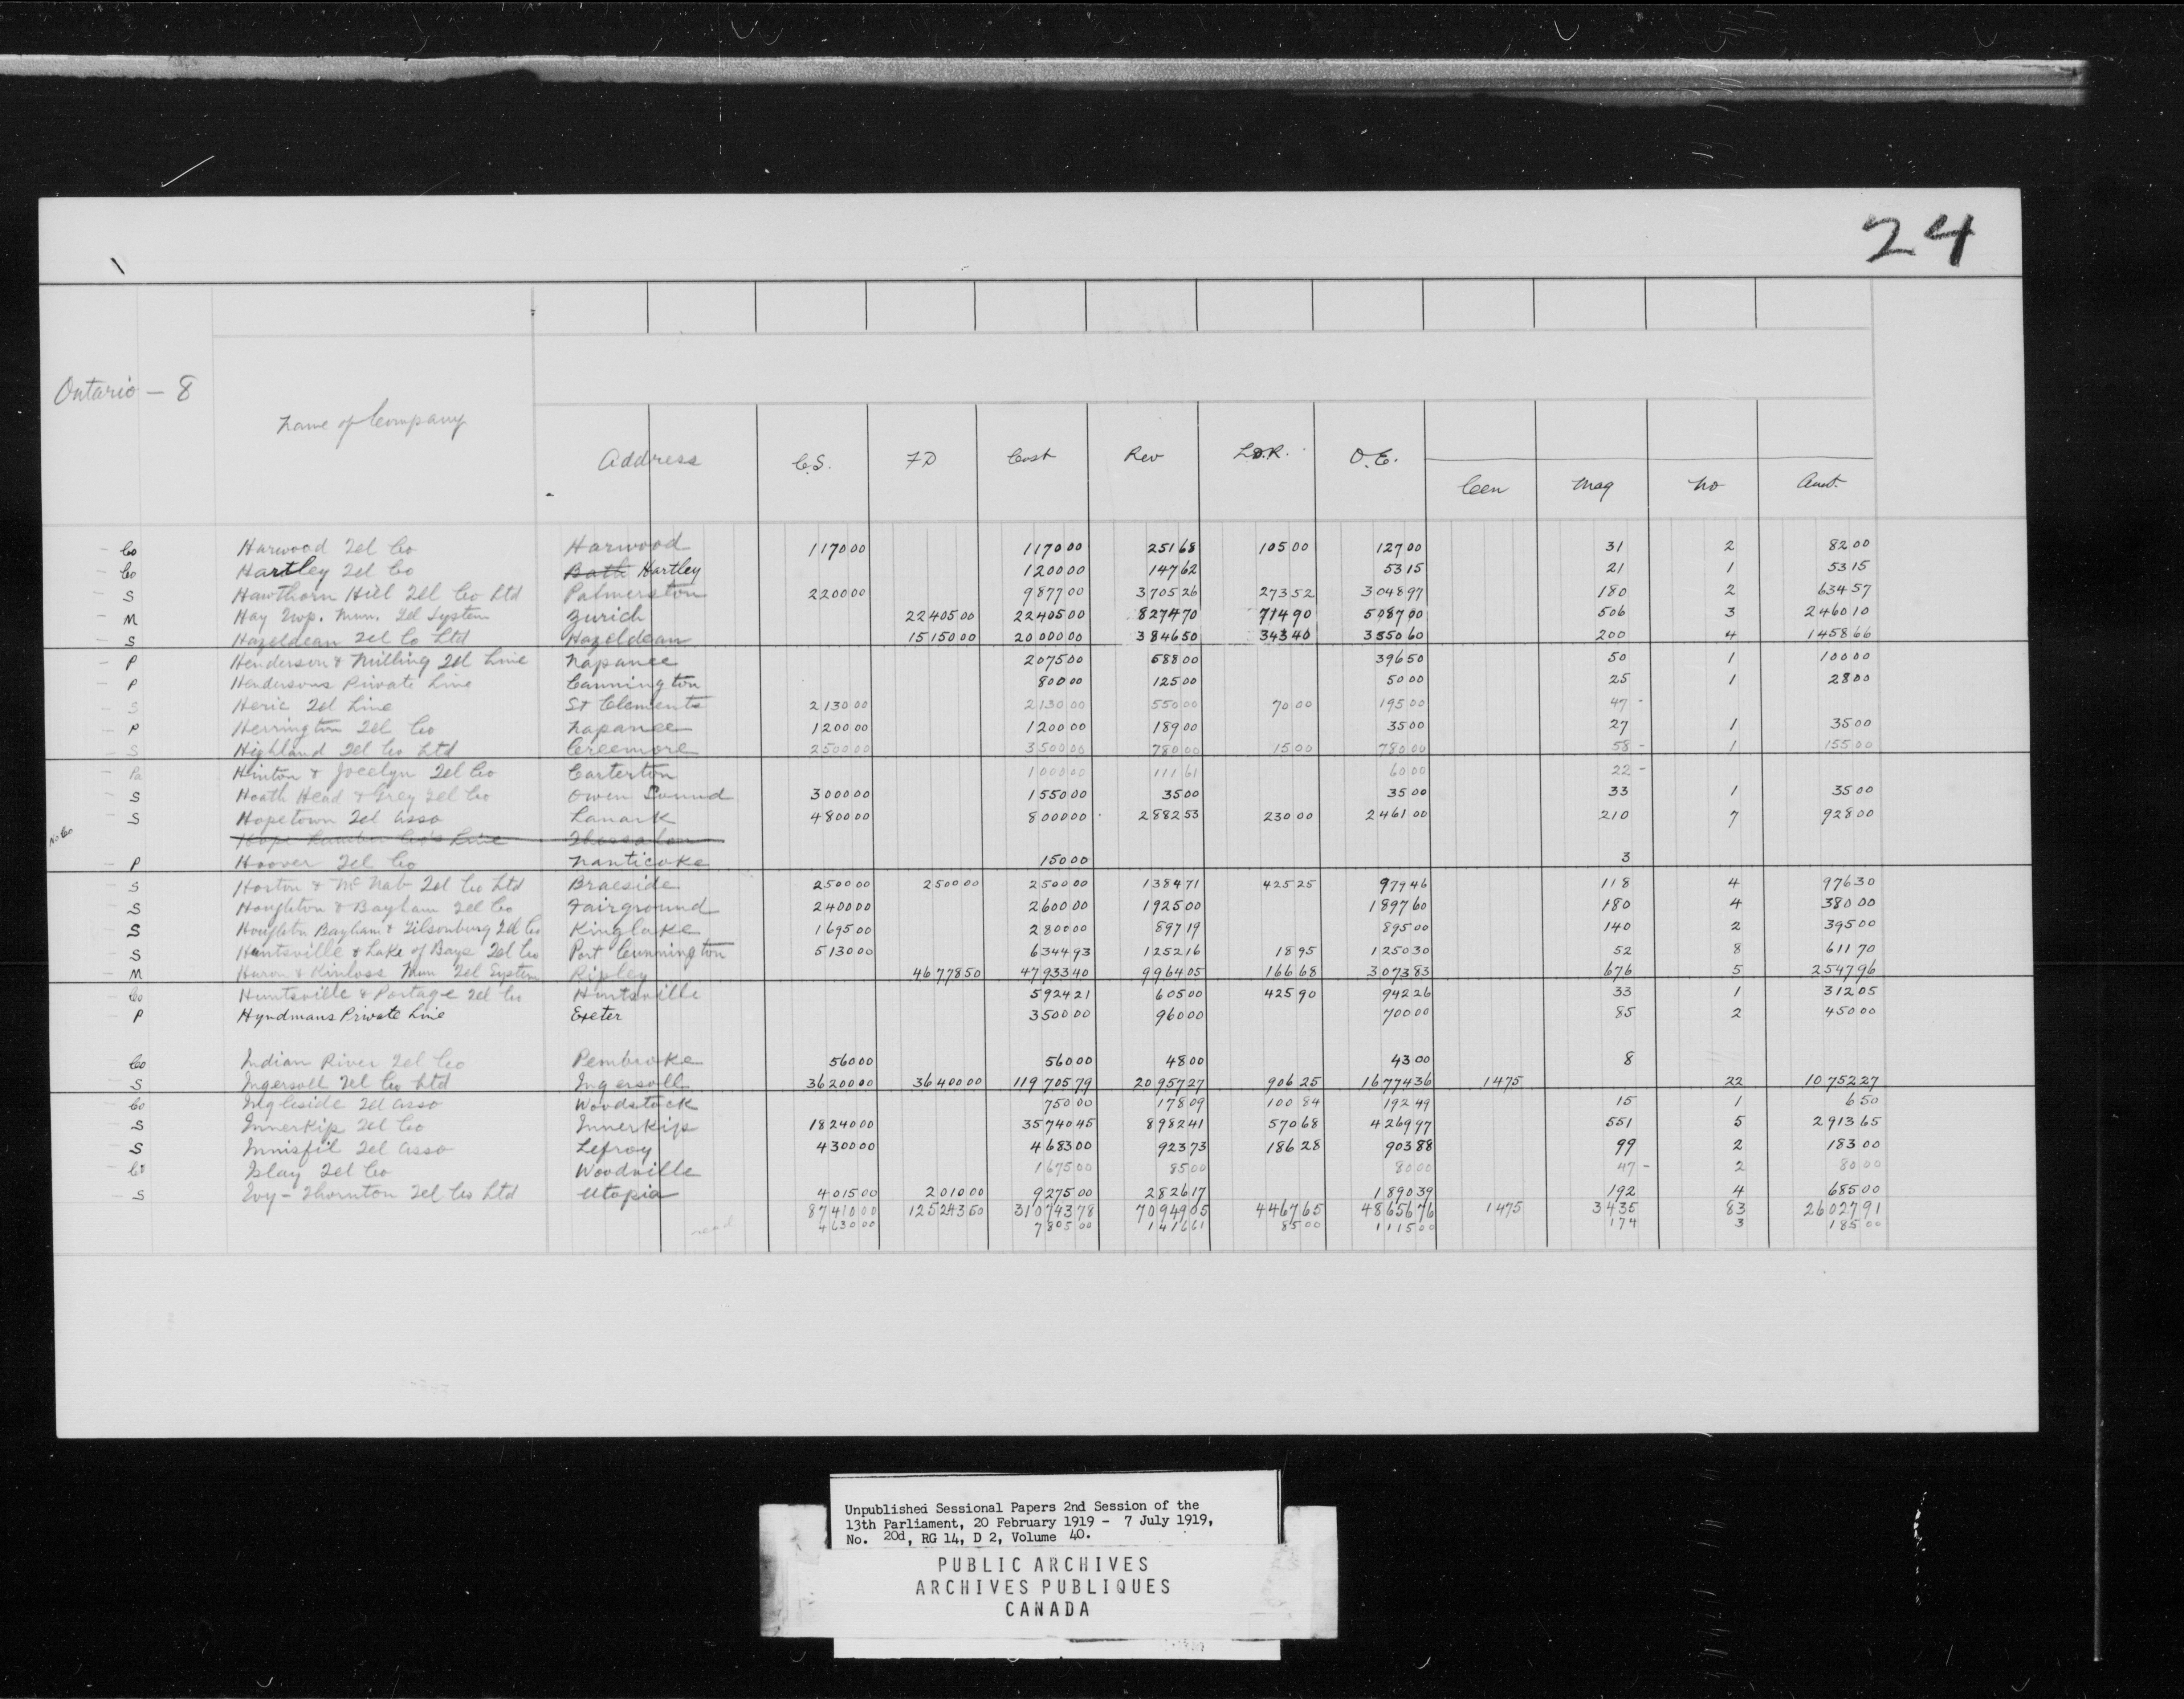 24
Ontario - 8
Name of Company Address C.S. FD Cost Rev L.D.R. O.E. Cen Mag No Amt.
Co Harwood Tel Co Harwood 117000 117000 25168 10500 12700 31 2 8200
Co Hartley Tel Co Bath Hartley 120000 14762 5315 21 1 5315
S Hawthorn Hill Tel Co Ltd Palmerston 220000 987700 370526 27352 304897 180 2 63457
M Hay Twp. Mun. Tel System Zurich 2240500 2240500 827470 71490 508700 506 3 246010
S Hazeldean Tel Co Ltd Hazeldean 1515000 2000000 384650 34340 355060 200 4 145866
P Henderson & Milling Tel Line Napanee 207500 58800 39650 50 1 10000
P Hendersons Private Line Cannington 80000 12500 5000 25 1 2800
S Heric Tel Line St Clements 213000 213000 55000 7000 19500 47 -
P Herrington Tel Co Napanee 120000 120000 18900 3500 27 1 3500
S Highland Tel Co Ltd Creemore 250000 350000 78000 1500 78000 58 - 1 15500
Pa Hinton & Jocelyn Tel Co Carterton 100000 11161 6000 22 -
S Hoath Head & Grey Tel Co Owen Sound 300000 155000 3500 3500 33 1 3500
S Hopetown Tel Asso Lanark 480000 800000 288253 23000 246100 210 7 92800
No Co Hope Lumber Co's Line Thessalon
P Hoover Tel Co Nanticoke 15000 3
S Horton & McNab Tel Co Ltd Braeside 250000 250000 250000 138471 42525 97946 118 4 97630
S Houghton & Bayham Tel Co Fairground 240000 260000 192500 189760 180 4 38000
S Houghton Bayham & Tilsonburg Tel Co Kinglake 169500 280000 89719 89500 140 2 39500
S Huntsville & Lake of Bays Tel Co Port Cunnington 513000 634493 125216 1895 125030 52 8 61170
M Huron & Kinloss Mun Tel System Ripley 4677850 4793340 996405 16668 307383 676 5 254796
Co Huntsville & Portage Tel Co Huntsville 592421 60500 42590 94226 33 1 31205
P Hyndmans Private Line Exeter 350000 96000 70000 85 2 45000
Co Indian River Tel Co Pembroke 56000 56000 4800 4300 8
S Ingersoll Tel Co Ltd Ingersoll 3620000 3640000 11970579 2095727 90625 1677436 1475 22 1075227
Co Ingleside Tel Asso Woodstock 75000 17809 10084 19249 15 1 650
S Innerkip Tel Co Innerkip 1824000 3574045 898241 57068 426997 551 5 291365
S Innisfil Tel Asso Lefroy 430000 468300 92373 18628 90388 99 2 18300
Co Islay Tel Co Woodville 167500 8500 8000 47 - 2 8000
S Ivy - Thornton Tel Co Ltd Utopia 401500 201000 927500 282617 189039 192 4 68500
8741000 12524350 31074378 7094905 446765 4865676 1475 3435 83 2602791
463000 780500 141661 8500 111500 174 3 18500
Unpublished Sessional Papers 2nd Session of the
13th Parliament, 20 February 1919 - 7 July 1919,
No. 20d, RG 14, D 2, Volume 40.
PUBLIC ARCHIVES
ARCHIVES PUBLIQUES
CANADA